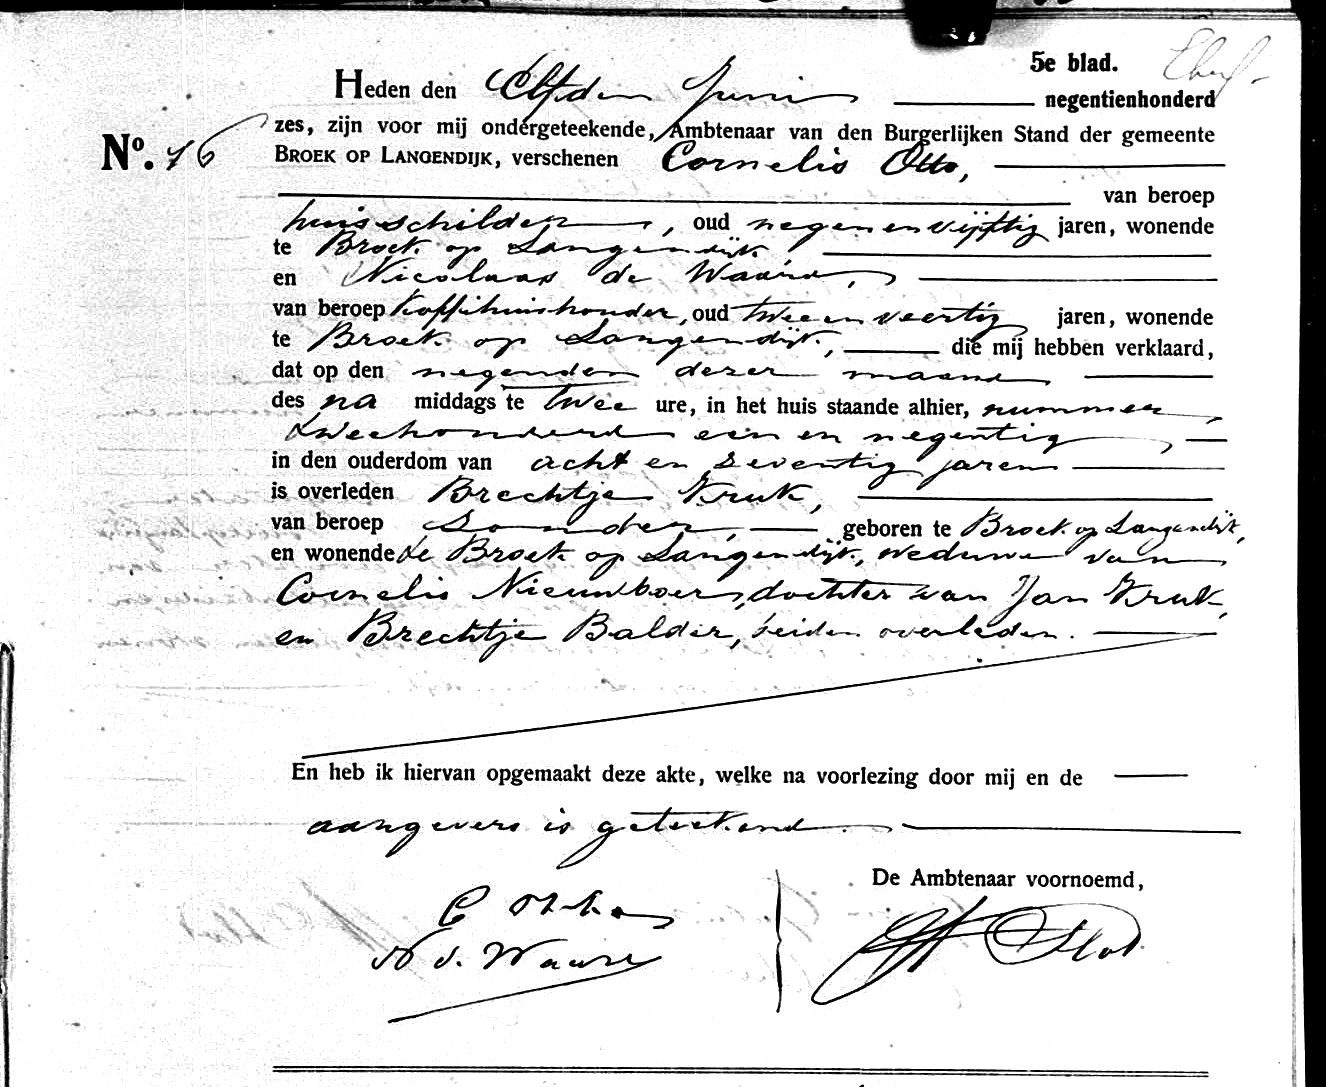 5e blad.
Heden den Elfden Juni negentienhonderd
No. 16
zes, zijn voor mij ondergeteekende, Ambtenaar van den Burgerlijken Stand der gemeente
BROEK OP LANGENDIJK, verschenen Cornelis Otto,
van beroep
huisschilder, oud negen en vijftig jaren, wonende
te Broek op Langendijk
en Nicolaas de Waard,
van beroep Koffiehuishouder, oud twee en veertig jaren, wonende
te Broek op Langendijk, die mij hebben verklaard,
dat op den negenden dezer maand
des na middags te twee ure, in het huis staande alhier, nummer
tweehonderd een en negentig,
in den ouderdom van acht en zeventig jaren
is overleden Brechtje Kruk,
van beroep zonder, geboren te Broek op Langendijk,
en wonende te Broek op Langendijk, weduwe van
Cornelis Nieuwboer, dochter van Jan Kruk
en Brechtje Balder, beiden overleden.
En heb ik hiervan opgemaakt deze akte, welke na voorlezing door mij en de
aangevers is geteekend.
De Ambtenaar voornoemd,
C Otto
N d. Waard
Slot